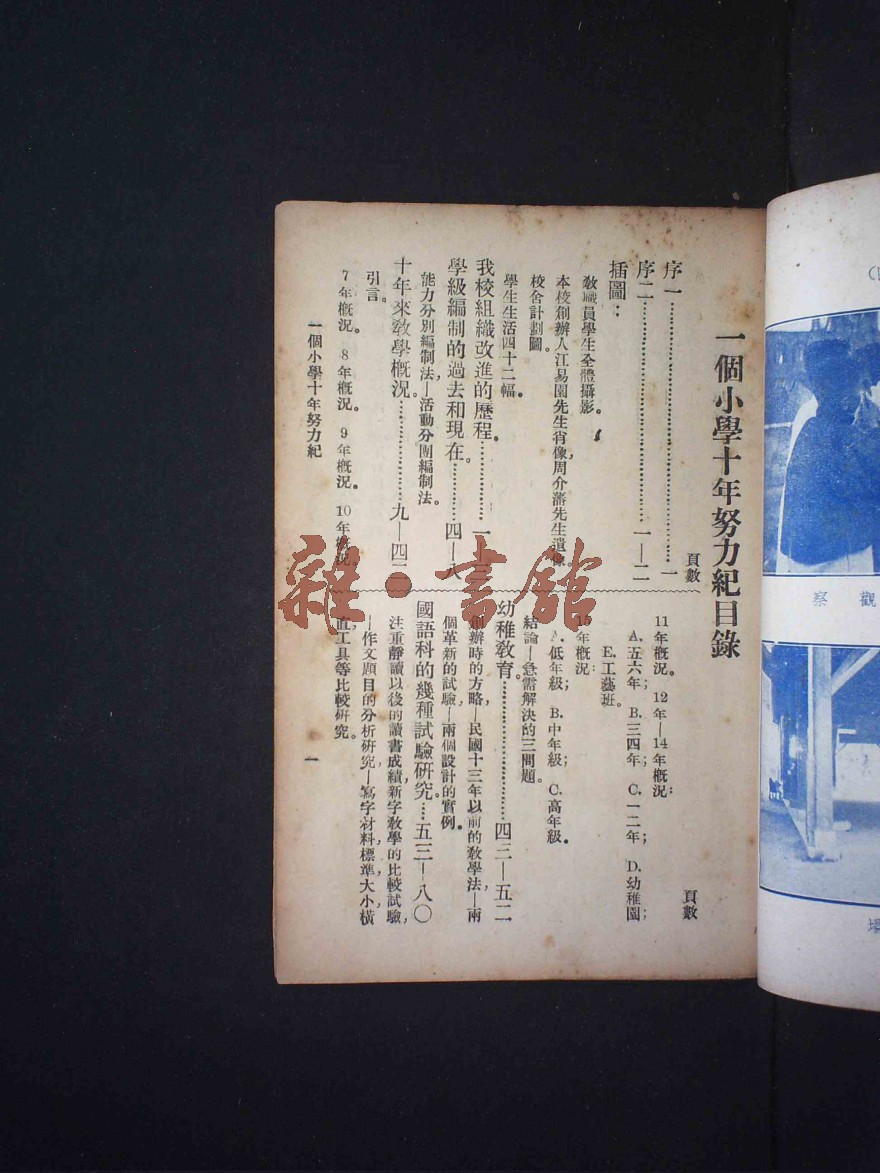 一個小學十年努力紀目錄
頁數
序一……………………一
序二……………………一—二
插圖：
敎職員學生全體攝影。
本校創辦人江易園先生肖像，周介藩先生遺像。
校舍計劃圖。
學生生活四十二幅。
我校組織改進的歷程。……………一—三
學級編制的過去和現在。………四—八
能力分別編制法—活動分團編制法。
十年來敎學槪況。……………九—四二
引言。
7年槪況。 8年槪況。 9年槪況。 10年槪況。
頁數
11年槪況。 12年—14年槪況：
A.五六年； B.三四年； C.一二年； D.幼稚園；
E.工藝班。
15年槪況：
A.低年級； B.中年級； C.高年級。
結論—急需解決的三問題。
幼稚敎育。……………………四三—五二
創辦時的方略—民國十三年以前的敎學法，—兩
個革新的試驗—兩個設計的實例。
國語科的幾種試驗研究。…五三—八〇
注重靜讀以後的讀書成績，新字敎學的比較試驗，
—作文題目的分析研究—寫字材料，標準，大小，橫
直，工具等比較研究。
一個小學十年努力紀
一
雜·書館
觀察
場